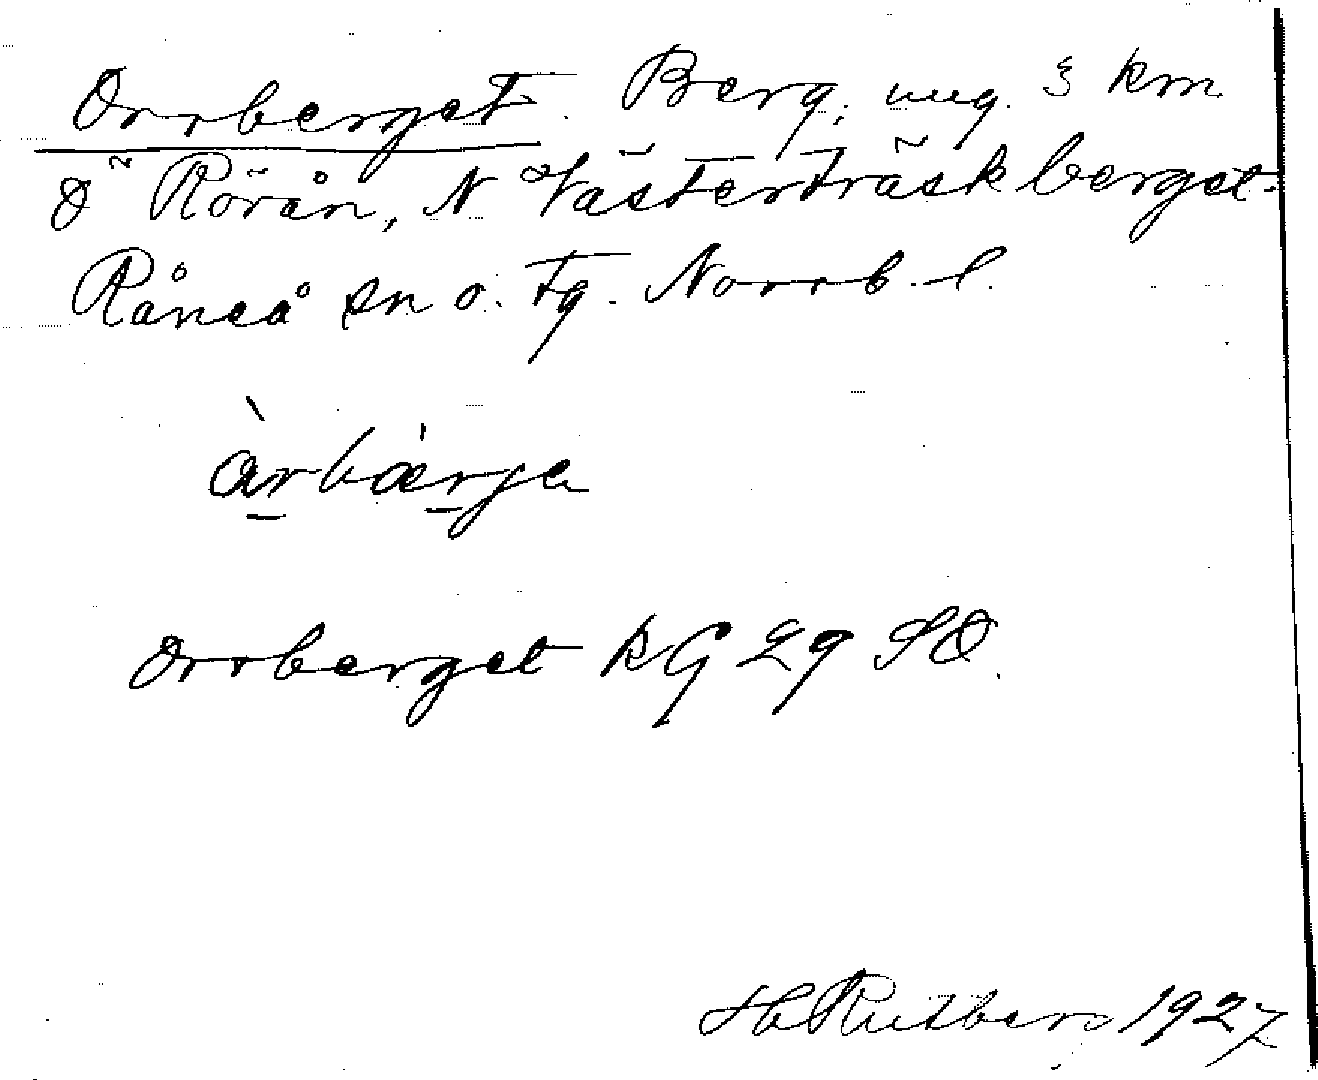 Orrberget. Berg, ung. 3 km
Ö Rörån, N Västerträskberget.
Råneå sn o. tg. Norrb. l.
àrbærje
Orrberget KG 29 SO.
H Rutberg 1927